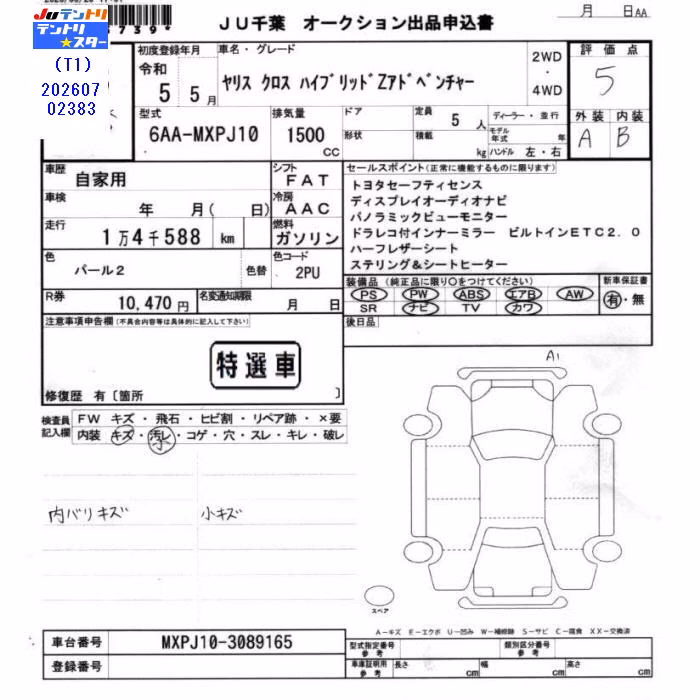 JUテントリ
テントリ★スター
(T1)
202607
02383
JU千葉 オークション出品申込書
月 日AA
初度登録年月
令和
5 5月
車名・グレード
ヤリス クロス ハイブリッドZアドベンチャー
2WD
・
4WD
評価点
5
型式
6AA-MXPJ10
排気量
1500
CC
ドア
形状
定員 5 人
積載 kg
ディーラー・並行
モデル年式 年
ハンドル 左・右
外装 内装
A B
車歴
自家用
シフト
FAT
車検
年 月( 日)
冷房
AAC
走行
1万4千588 km
燃料
ガソリン
色
パール2
色替
色コード
2PU
R券
10,470円
名変通知期限
月 日
セールスポイント(正常に機能するものに限ります)
トヨタセーフティセンス
ディスプレイオーディオナビ
パノラミックビューモニター
ドラレコ付インナーミラー ビルトインETC2.0
ハーフレザーシート
ステリング&シートヒーター
装備品(純正品に限り○をつけてください)
PS PW ABS エアB AW
SR ナビ TV カワ
新車保証書
有・無
後日品
注意事項申告欄(不具合内容等は具体的に記入して下さい)
特選車
修復歴 有〔箇所 〕
検査員
記入欄
FW キズ・飛石・ヒビ割・リペア跡・×要
内装 キズ・汚レ・コゲ・穴・スレ・キレ・破レ
小
内バリキズ 小キズ
A1
スペア
A-キズ E-エクボ U-凹み W-補修跡 S-サビ C-腐食 XX-交換済
車台番号
MXPJ10-3089165
登録番号
型式指定番号
参考
類別区分番号
参考
車庫証明用
参考
長さ cm
幅 cm
高さ cm